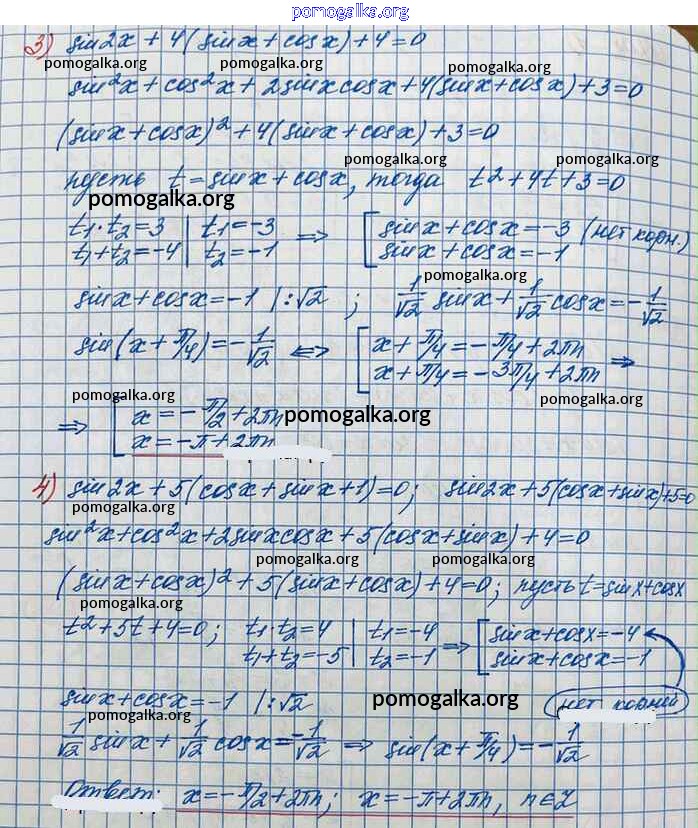 pomogalka.org
3) sin2x + 4(sinx + cosx) + 4 = 0
pomogalka.org pomogalka.org pomogalka.org
sin²x + cos²x + 2sinxcosx + 4(sinx+cosx) + 3 = 0
(sinx + cosx)² + 4(sinx + cosx) + 3 = 0
pomogalka.org pomogalka.org
пусть t = sinx + cosx, тогда t² + 4t + 3 = 0
pomogalka.org
t₁·t₂ = 3 | t₁ = -3 ⇒ [ sinx + cosx = -3 (нет корн.)
t₁+t₂ = -4 | t₂ = -1 [ sinx + cosx = -1
pomogalka.org
sinx + cosx = -1 |:√2 ; 1/√2 sinx + 1/√2 cosx = -1/√2
sin(x + π/4) = -1/√2 ⇔ [ x + π/4 = -π/4 + 2πn
[ x + π/4 = -3π/4 + 2πn ⇒
pomogalka.org pomogalka.org
⇒ [ x = -π/2 + 2πn
pomogalka.org
[ x = -π + 2πn
4) sin2x + 5(cosx + sinx + 1) = 0; sin2x + 5(cosx + sinx) + 5 = 0
pomogalka.org
sin²x + cos²x + 2sinxcosx + 5(cosx + sinx) + 4 = 0
pomogalka.org pomogalka.org
(sinx + cosx)² + 5(sinx + cosx) + 4 = 0; пусть t = sinx + cosx
pomogalka.org
t² + 5t + 4 = 0; t₁·t₂ = 4 | t₁ = -4 ⇒ [ sinx + cosx = -4
t₁+t₂ = -5 | t₂ = -1 [ sinx + cosx = -1
sinx + cosx = -1 |:√2 pomogalka.org нет корней
pomogalka.org
1/√2 sinx + 1/√2 cosx = -1/√2 ⇒ sin(x + π/4) = -1/√2
Ответ: x = -π/2 + 2πn; x = -π + 2πn, n∈Z